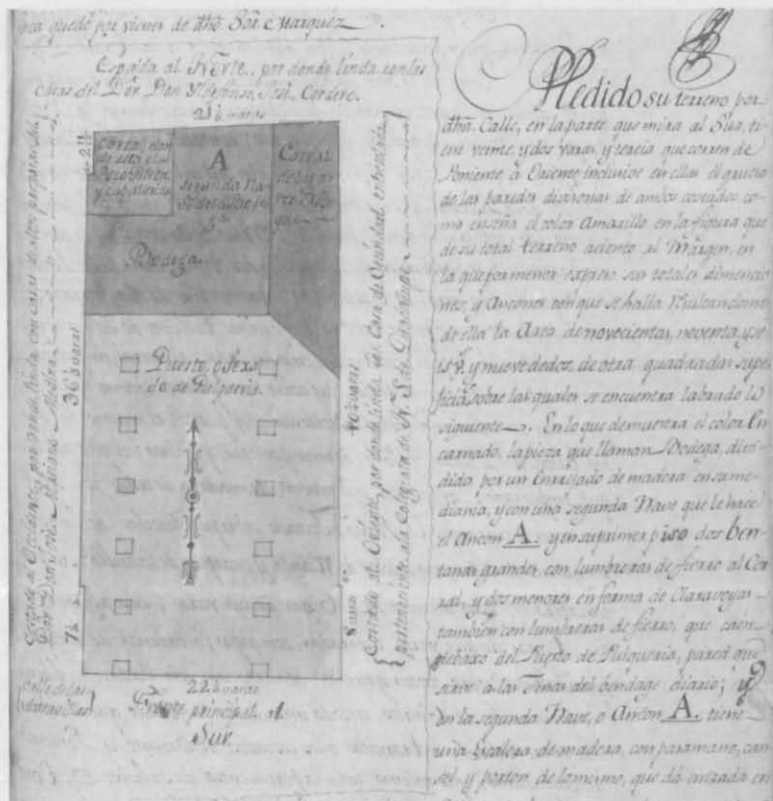 quedó por viener de dho Sôr Marquéz
Espalda al Norte, por donde linda con las
casas del Dor. Don Yldefonso, José, Cordero.
21⅓ varas
A
segunda Na-
Corral
Bodega
Puesto, o Jexa-
do de Pulqueria
36⅓ varas
40⅓ varas
7⅓
8 varas
22⅓ varas
Frente principal al
Sur
Costado al Occidente, por donde linda con casas
Costado al Oriente, por donde linda con Casa de Comunidad
perteneciente à la Colegiata de N. S. de Guadalupe
Medido su terreno por
dha. Calle, en la parte que mira al Sur, ti-
ene veinte, y dos varas, y tercia que corren de
Poniente à Oriente inclusive en ellas el grueso
de las paredes divisorias de ambos costados, co-
mo enseña el color Amarillo, en la figura que
de su total terreno aciento al Márgen, en
la que por menor expreso sus totales dimencio-
nes, y Ancones con que se halla Resultandome
de ella la Area de novecientas, noventa, y se-
is vs. y nueve dedos de otra quadradas super-
ficiàs sobre las quales se encuentra labrado lo
siguiente. En lo que demuestra el color En-
carnado, la pieza que llaman Bodega, divi-
dida por un Enrejado de madera en su me-
diania, y con una segunda Nave que le hace
el Ancón A. y en su primer piso dos ben-
tanas grandes, con lumbreras de fierro al Cor-
ral, y dos menores en forma de Claravoyas
tambien con lumbreras de fierro, que caen
debaxo del Puesto de Pulqueria, pared que
sirve à las Tinas del bendage diario; y
en la segunda Nave, ó Ancon A. tiene
una Escalera de madera, con pasamano, can-
sel, y porton de lo mismo, que dá entrada en